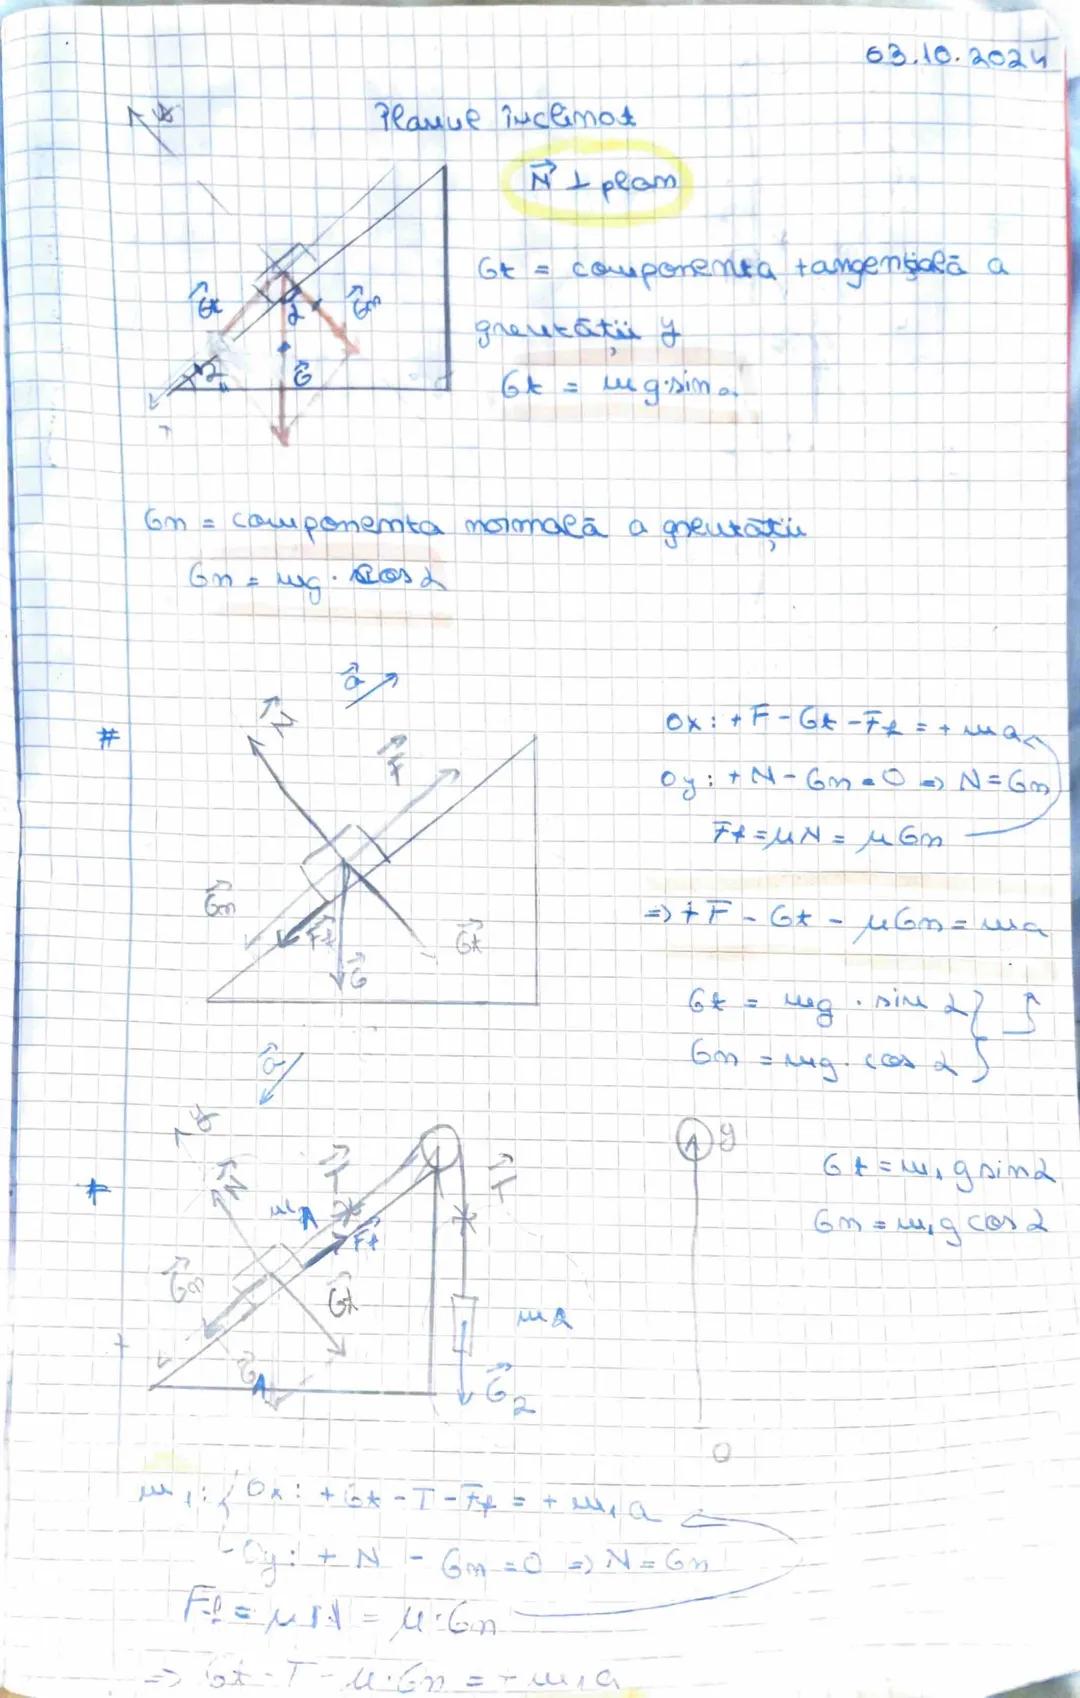 03.10.2024
y
Planul înclinat
N ⊥ plan
Gt = componenta tangențială a
greutății y
Gt = mg·sin α
Gt
α
Gn
α
G
x
Gn = componenta normală a greutății
Gn = mg · cos α
a
#
N
F
Gn
Ff
Gt
G
Ox: +F - Gt - Ff = + ma
Oy: +N - Gn = 0 => N = Gn
Ff = μN = μGn
=> +F - Gt - μGn = ma
Gt = mg · sin α
Gn = mg · cos α
a
y
#
N
T
T
m1
Ff
Gn
Gt
m2
G1
G2
y
O
Gt = m1 g sin α
Gn = m1 g cos α
m1: { Ox: + Gt - T - Ff = + m1 a
Oy: + N - Gn = 0 => N = Gn
Ff = μN = μ·Gn
=> Gt - T - μ·Gn = + m1 a